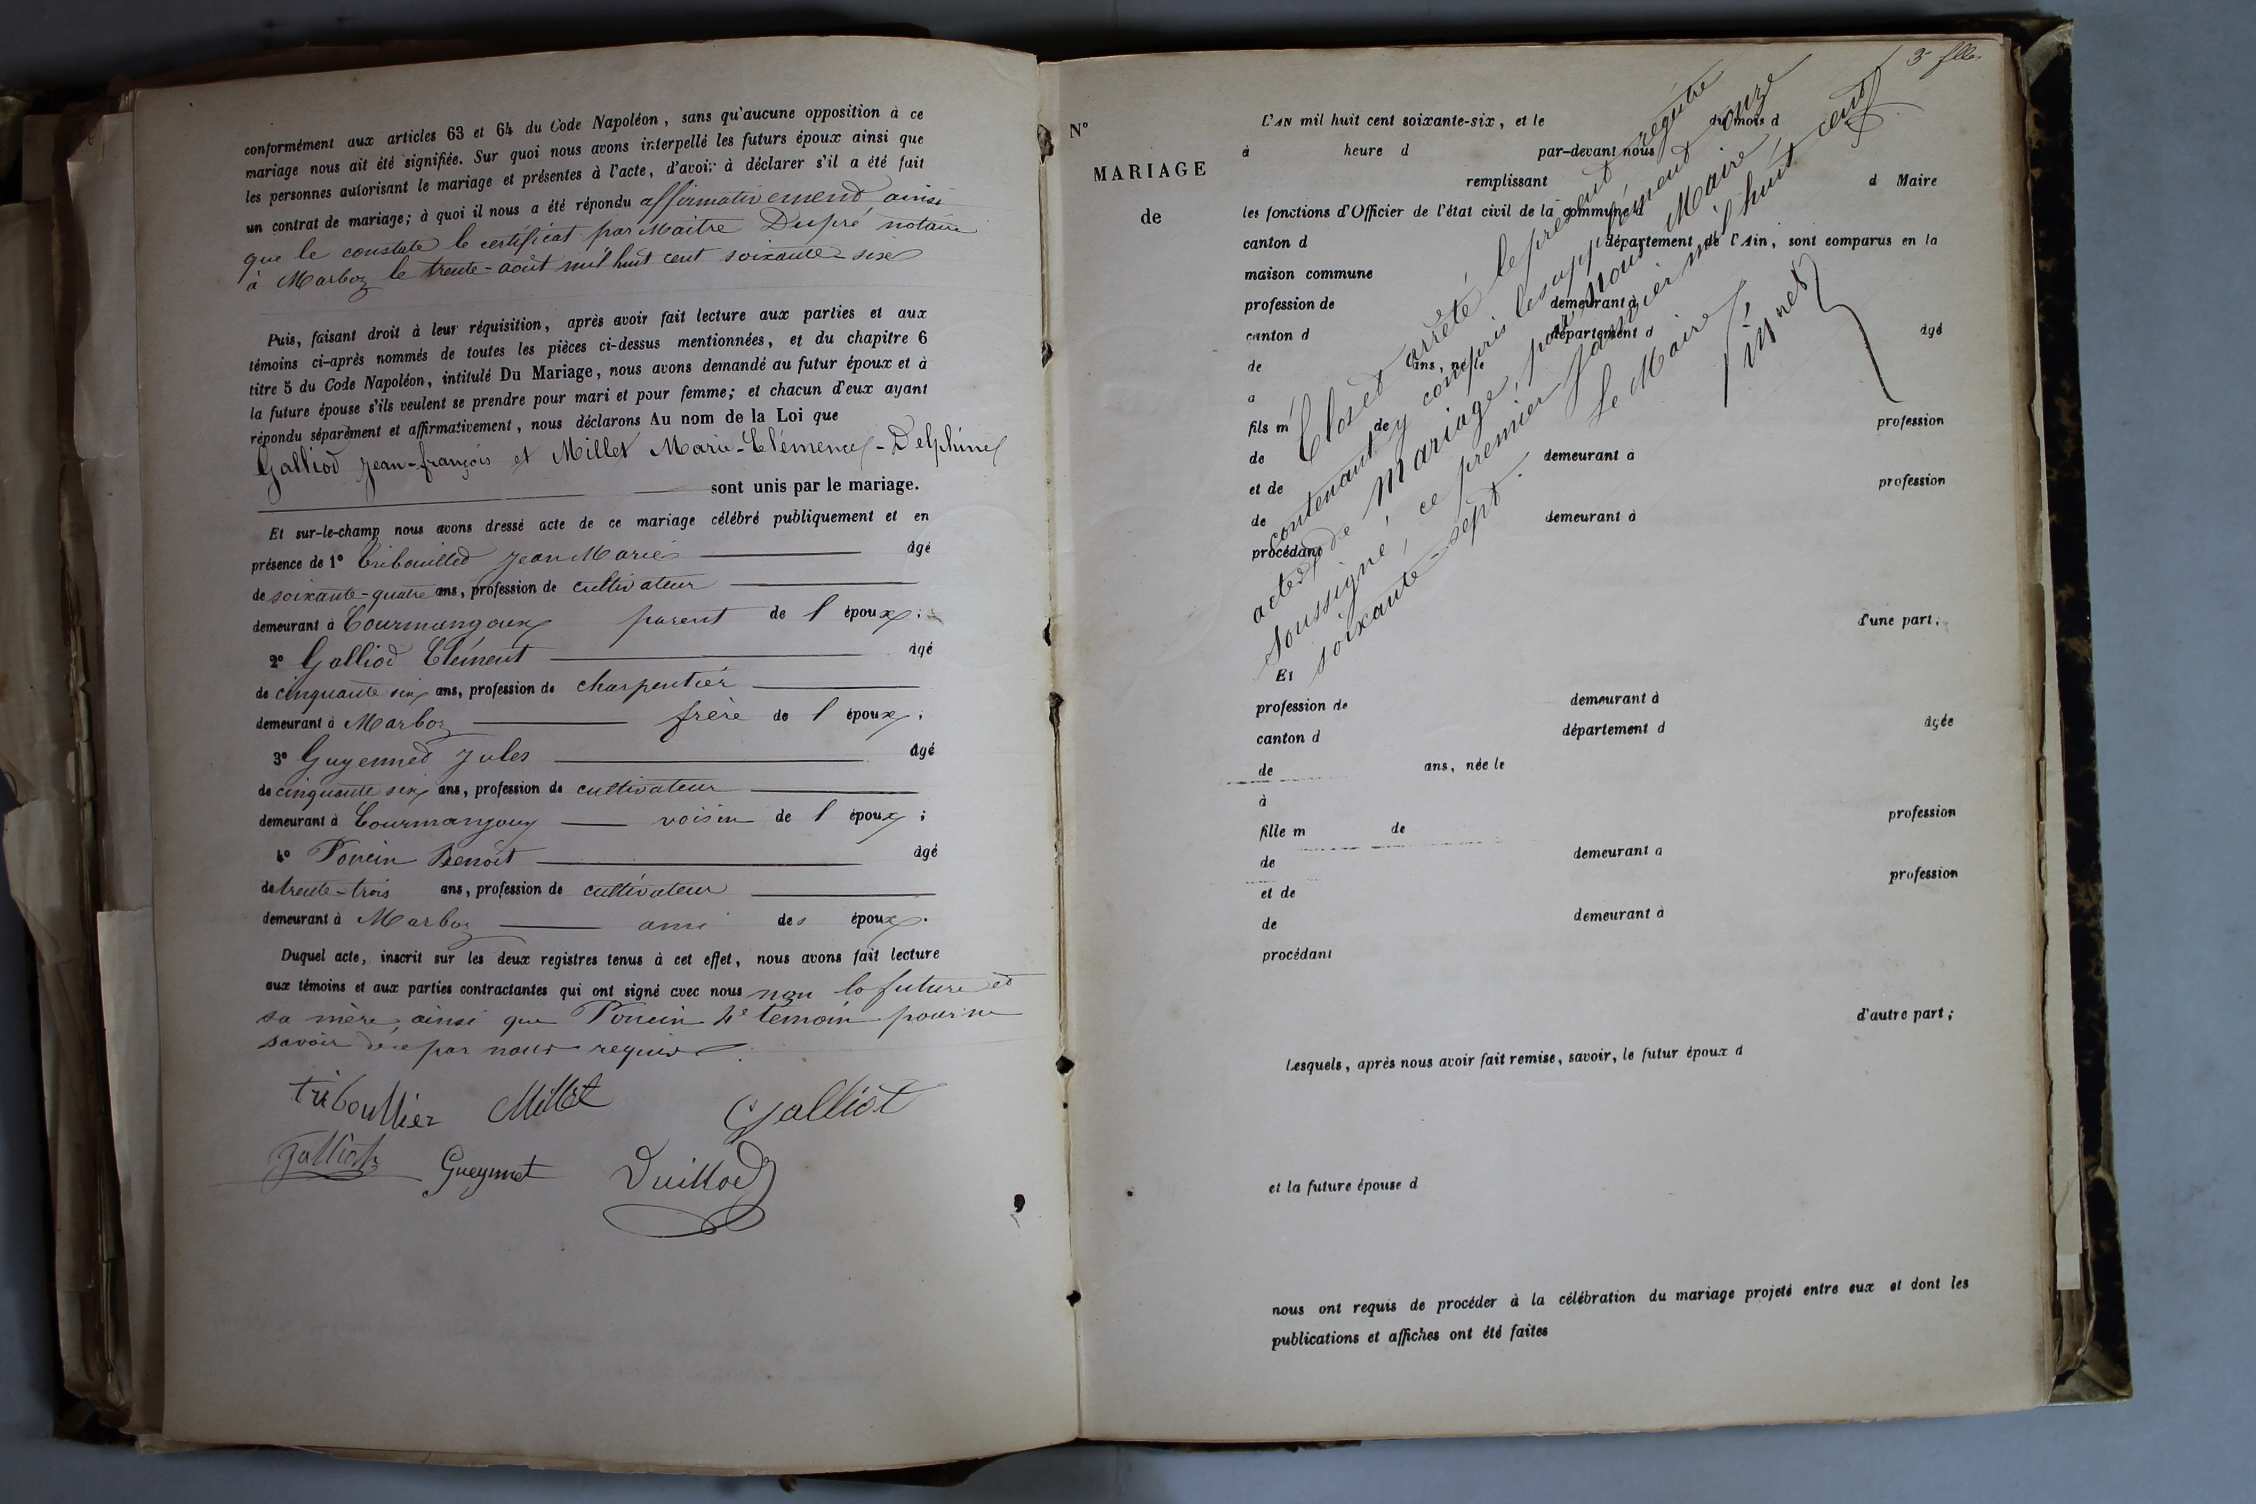 conformément aux articles 63 et 64 du Code Napoléon, sans qu'aucune opposition à ce
mariage nous ait été signifiée. Sur quoi nous avons interpellé les futurs époux ainsi que
les personnes autorisant le mariage et présentes à l'acte, d'avoir à déclarer s'il a été fait
un contrat de mariage; à quoi il nous a été répondu affirmativement, ainsi
que le constate le certificat par Maitre Dupré notaire
à Marboz le trente-août mil huit cent soixante-six
Puis, faisant droit à leur réquisition, après avoir fait lecture aux parties et aux
témoins ci-après nommés de toutes les pièces ci-dessus mentionnées, et du chapitre 6
titre 5 du Code Napoléon, intitulé Du Mariage, nous avons demandé au futur époux et à
la future épouse s'ils veulent se prendre pour mari et pour femme; et chacun d'eux ayant
répondu séparément et affirmativement, nous déclarons Au nom de la Loi que
Galliod Jean-françois et Millet Marie-Clémence-Delphine
sont unis par le mariage.
Et sur-le-champ nous avons dressé acte de ce mariage célébré publiquement et en
présence de 1° Tribouilled Jean Marie âgé
de soixante-quatre ans, profession de cultivateur
demeurant à Courmangoux parent de l époux;
2° Galliod Clément âgé
de cinquante six ans, profession de charpentier
demeurant à Marboz frère de l époux;
3° Guyenned Jules âgé
de cinquante six ans, profession de cultivateur
demeurant à Courmangoux voisin de l époux;
4° Poncin Benoît âgé
de trente-trois ans, profession de cultivateur
demeurant à Marboz ami des époux.
Duquel acte, inscrit sur les deux registres tenus à cet effet, nous avons fait lecture
aux témoins et aux parties contractantes qui ont signé avec nous non la future et
sa mère, ainsi que Poncin 4e témoin pour ne
savoir de ce par nous requis.
triboullier Millet Galliot
galliot Gueynnet Duillod
3e flle
N°
MARIAGE
de
L'AN mil huit cent soixante-six, et le du mois d
à heure d par-devant nous
remplissant d Maire
les fonctions d'Officier de l'état civil de la commune d
canton d département de l'Ain, sont comparus en la
maison commune
profession de demeurant à
canton d département d âgé
de ans, né le
a
fils m de profession
de demeurant à
et de profession
de demeurant à
procédant
d'une part;
Et
profession de demeurant à
canton d département d âgée
de ans, née le
à
fille m de profession
de demeurant à
et de profession
de demeurant à
procédant
d'autre part;
Lesquels, après nous avoir fait remise, savoir, le futur époux d
et la future épouse d
nous ont requis de procéder à la célébration du mariage projeté entre eux et dont les
publications et affiches ont été faites
Clos et arrêté le présent registre
contenant y compris le supplément onze
actes de Mariage, par nous Maire
soussigné, ce premier Janvier mil huit cent
soixante-sept.
Le Maire